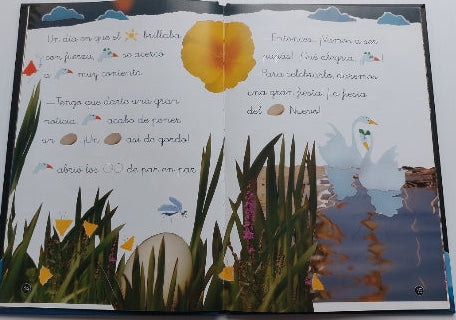 Un día en que el brillaba
con fuerza, se acercó
a muy contenta.
—Tengo que darte una gran
noticia, acabo de poner
un ¡Un así de gordo!
abrió los de par en par.
Entonces, ¡vamos a ser
¡Qué alegría, !
Para celebrarlo, haremos
una gran fiesta: ¡la fiesta
del Nuevo!